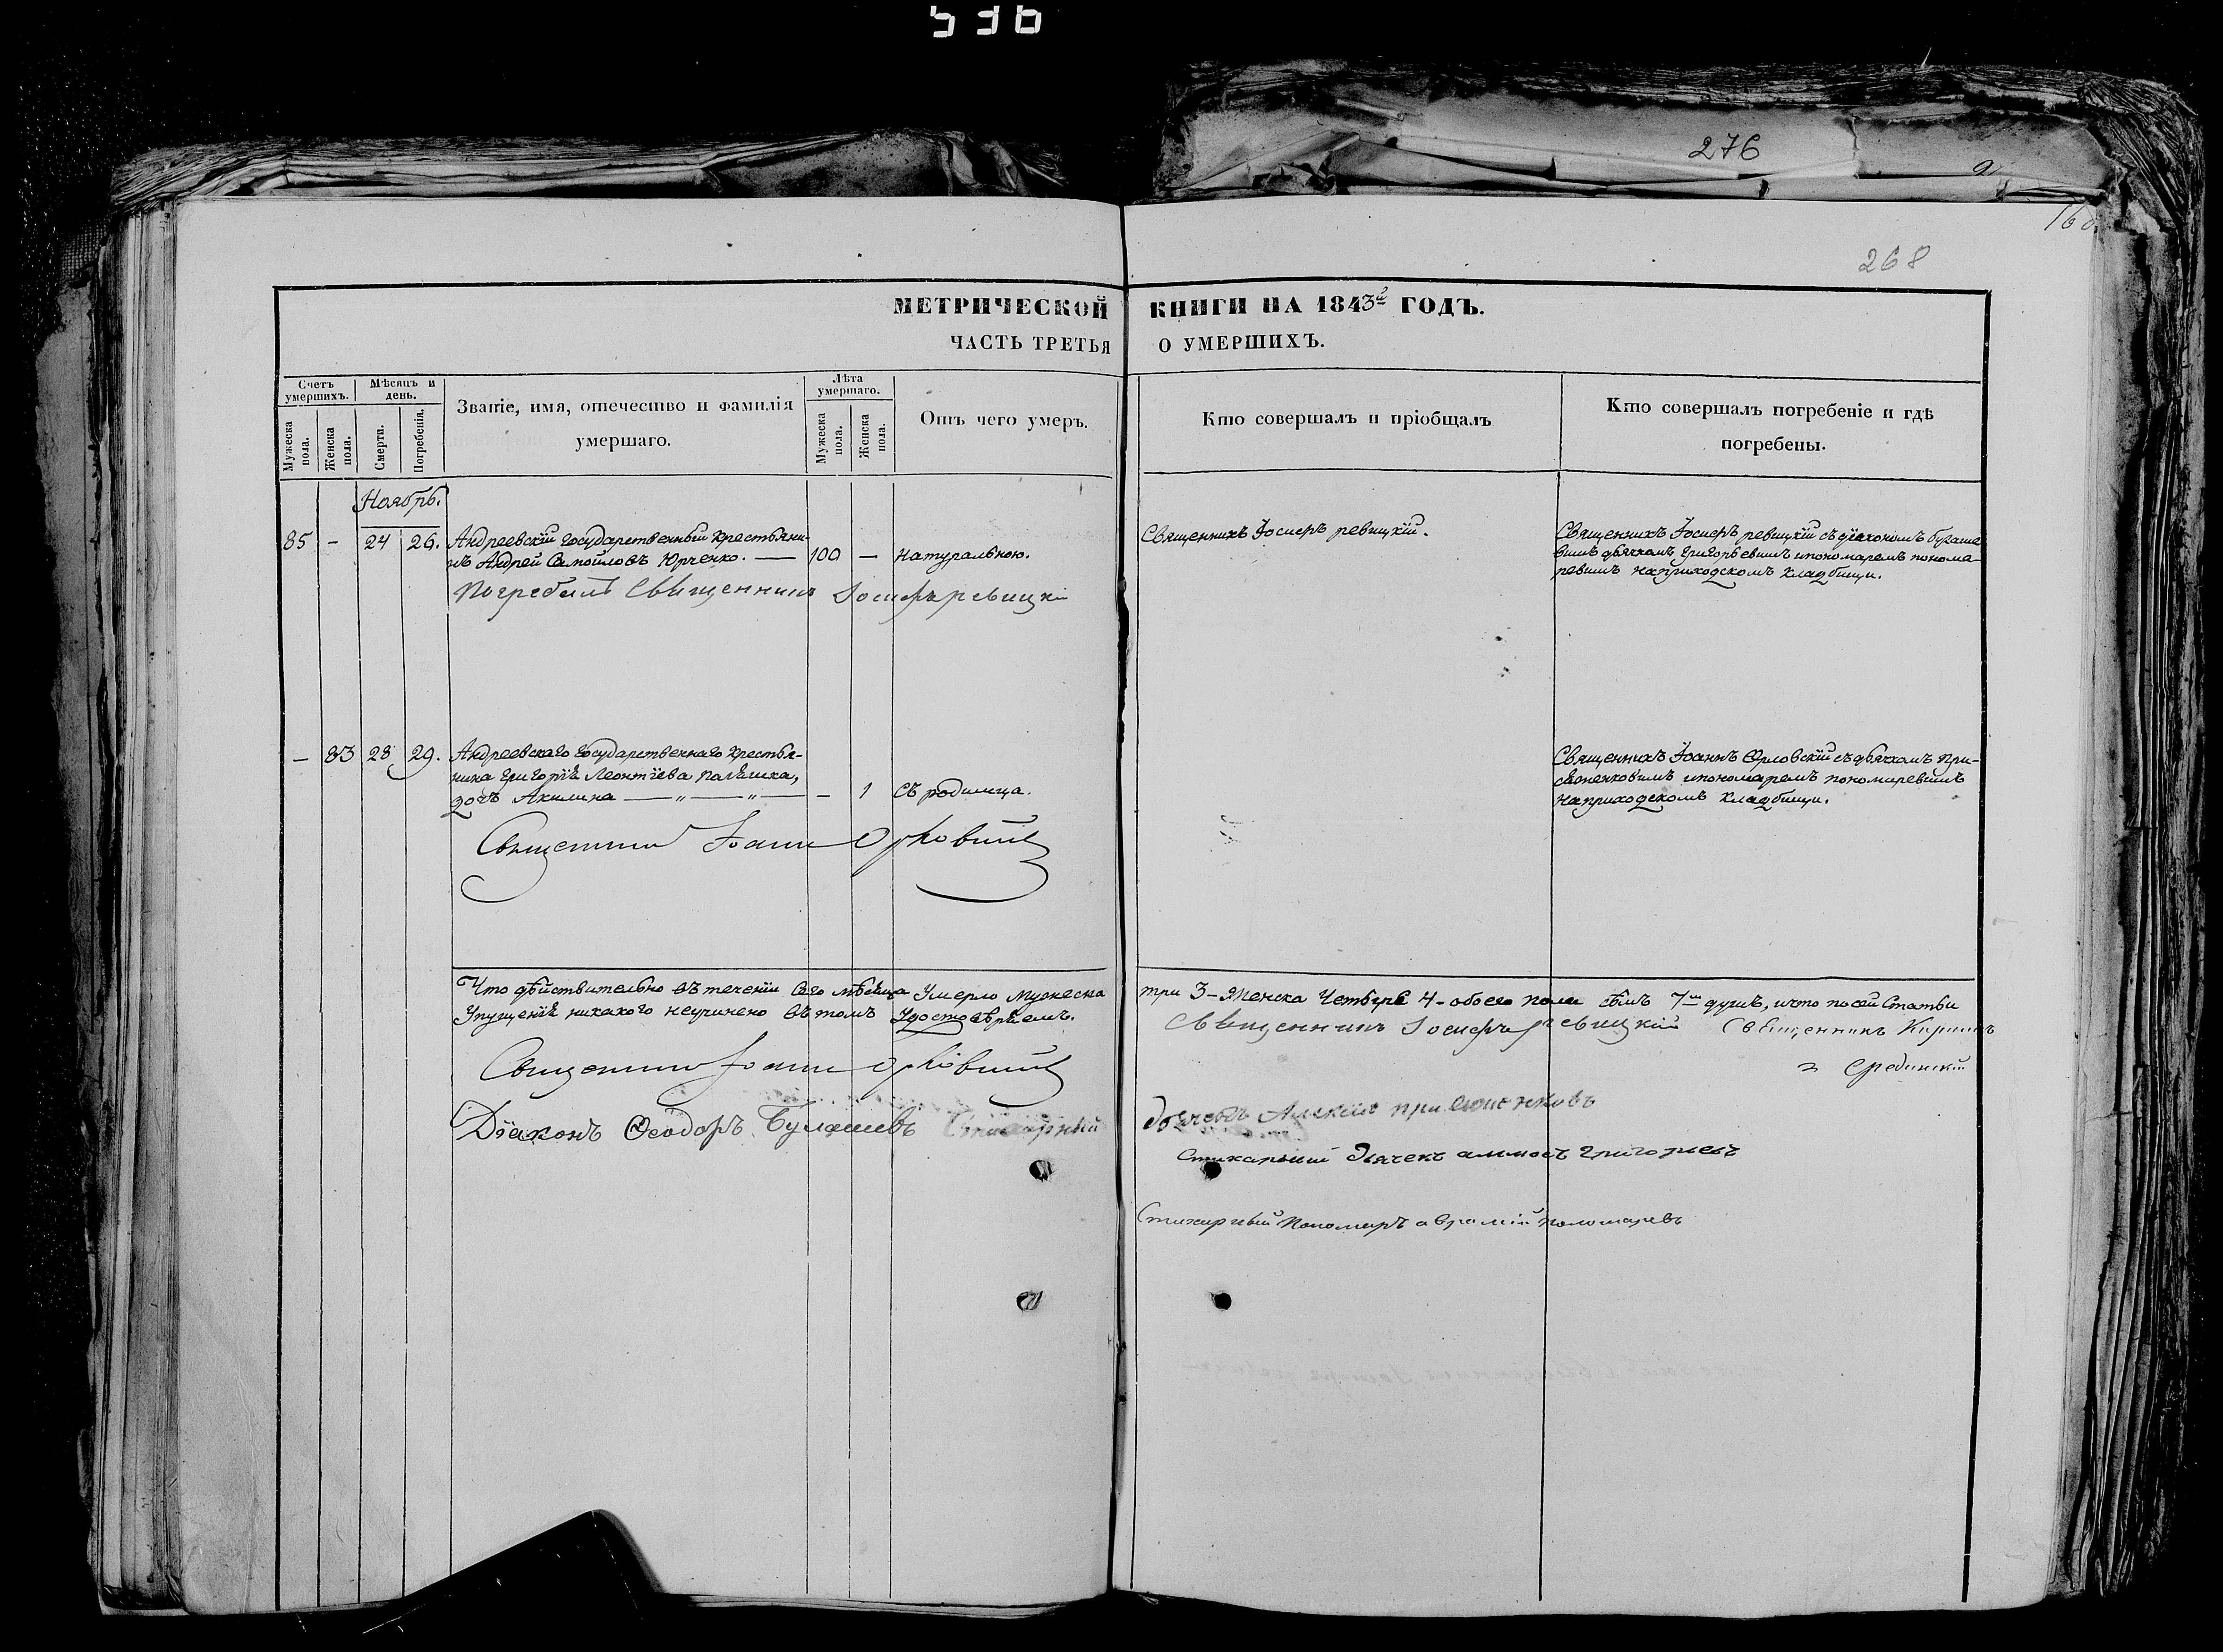 536
276
160
268
МЕТРИЧЕСКОЙ КНИГИ НА 1843й ГОДЪ.
ЧАСТЬ ТРЕТЬЯ О УМЕРШИХЪ.
Счетъ умершихъ.
Мѣсяцъ и день.
Званіе, имя, отечество и фамилія
умершаго.
Лѣта умершаго.
Отъ чего умеръ.
Кто совершалъ и пріобщалъ
Кто совершалъ погребеніе и гдѣ
погребены.
Мужеска пола.
Женска пола.
Смерти.
Погребенія.
Мужеска пола.
Женска пола.
Ноябрь.
85 - 24 26. Андреевскій государственный крестьяни-
нъ Андрей Самойловъ Юрченко. — 100 — натуральною.
Священникъ Іосифъ ревицкій.
Священникъ Іосифъ ревицкій съ діакономъ
дьячкомъ Григорьевымъ и пономаремъ понома-
ревымъ на приходскомъ кладбищи.
Погребалъ Священникъ Іосифъ ревицкій
— 83 28 29. Андреевскаго государственнаго крестья-
нина Григорія Леонтіева
дочь Акилина — „ — „ — — 1 съ родимца.
Священникъ Іоаннъ Орловскій съ дьячкомъ При-
и пономаремъ пономаревымъ
на приходскомъ кладбищи.
Священникъ Іоаннъ Орловскій
Что дѣйствительно въ теченіи сего мѣсяца Умерло мужеска три 3- Женска Четыре 4- обоего пола семь 7 душъ, и что по сей Статьи
Упущенія никакого неучинено въ томъ Удостовѣряемъ.
Священникъ Іосифъ ревицкій Священникъ
Срединскій
Священникъ Іоаннъ Орловскій
Діаконъ Ѳеодоръ Булашевъ
Дьячекъ Алексій
Стихарный Дьячекъ Григорьевъ
Стихарный Пономарь аврамій пономаревъ